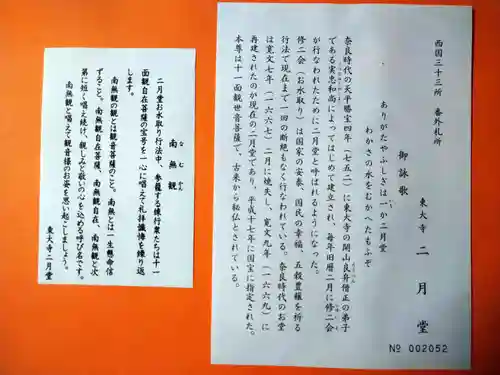 西国三十三所　番外札所
東大寺　二月堂
御詠歌
ありがたやふしぎは一か二月堂
わかさの水をむかへたもふぞ
奈良時代の天平勝宝四年（七五二）に東大寺の開山良弁僧正の弟子
である実忠和尚によってはじめて建立され、毎年旧暦二月に修二会
が行なわれたために二月堂と呼ばれるようになった。
修二会（お水取り）は国家の安泰、国民の幸福、五穀豊穰を祈る
行法で現在まで一回の断絶もなく行なわれている。奈良時代のお堂
は寛文七年（一六六七）二月に焼失し、寛文九年（一六六九）に
再建されたのが現在の二月堂であり、平成十七年に国宝に指定された。
本尊は十一面観世音菩薩で、古来から秘仏とされている。
№ 002052
南無観
なむかん
二月堂お水取り行法中、参籠する練行衆たちは十一
面観自在菩薩の宝号を一心に唱えて礼拝懺悔を繰り返
します。
南無観の観とは観音菩薩のこと。南無とは一生懸命信
ずること。南無観自在菩薩、南無観自在、南無観と次
第に短く唱え続け、親しみと敬いの心を込める呼び名です。
南無観と唱えて観音様のお姿を思い起こしましょう。
東大寺二月堂